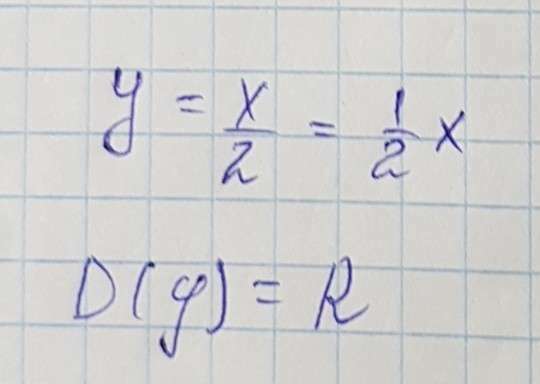 y = x/2 = 1/2 x
D(y) = R